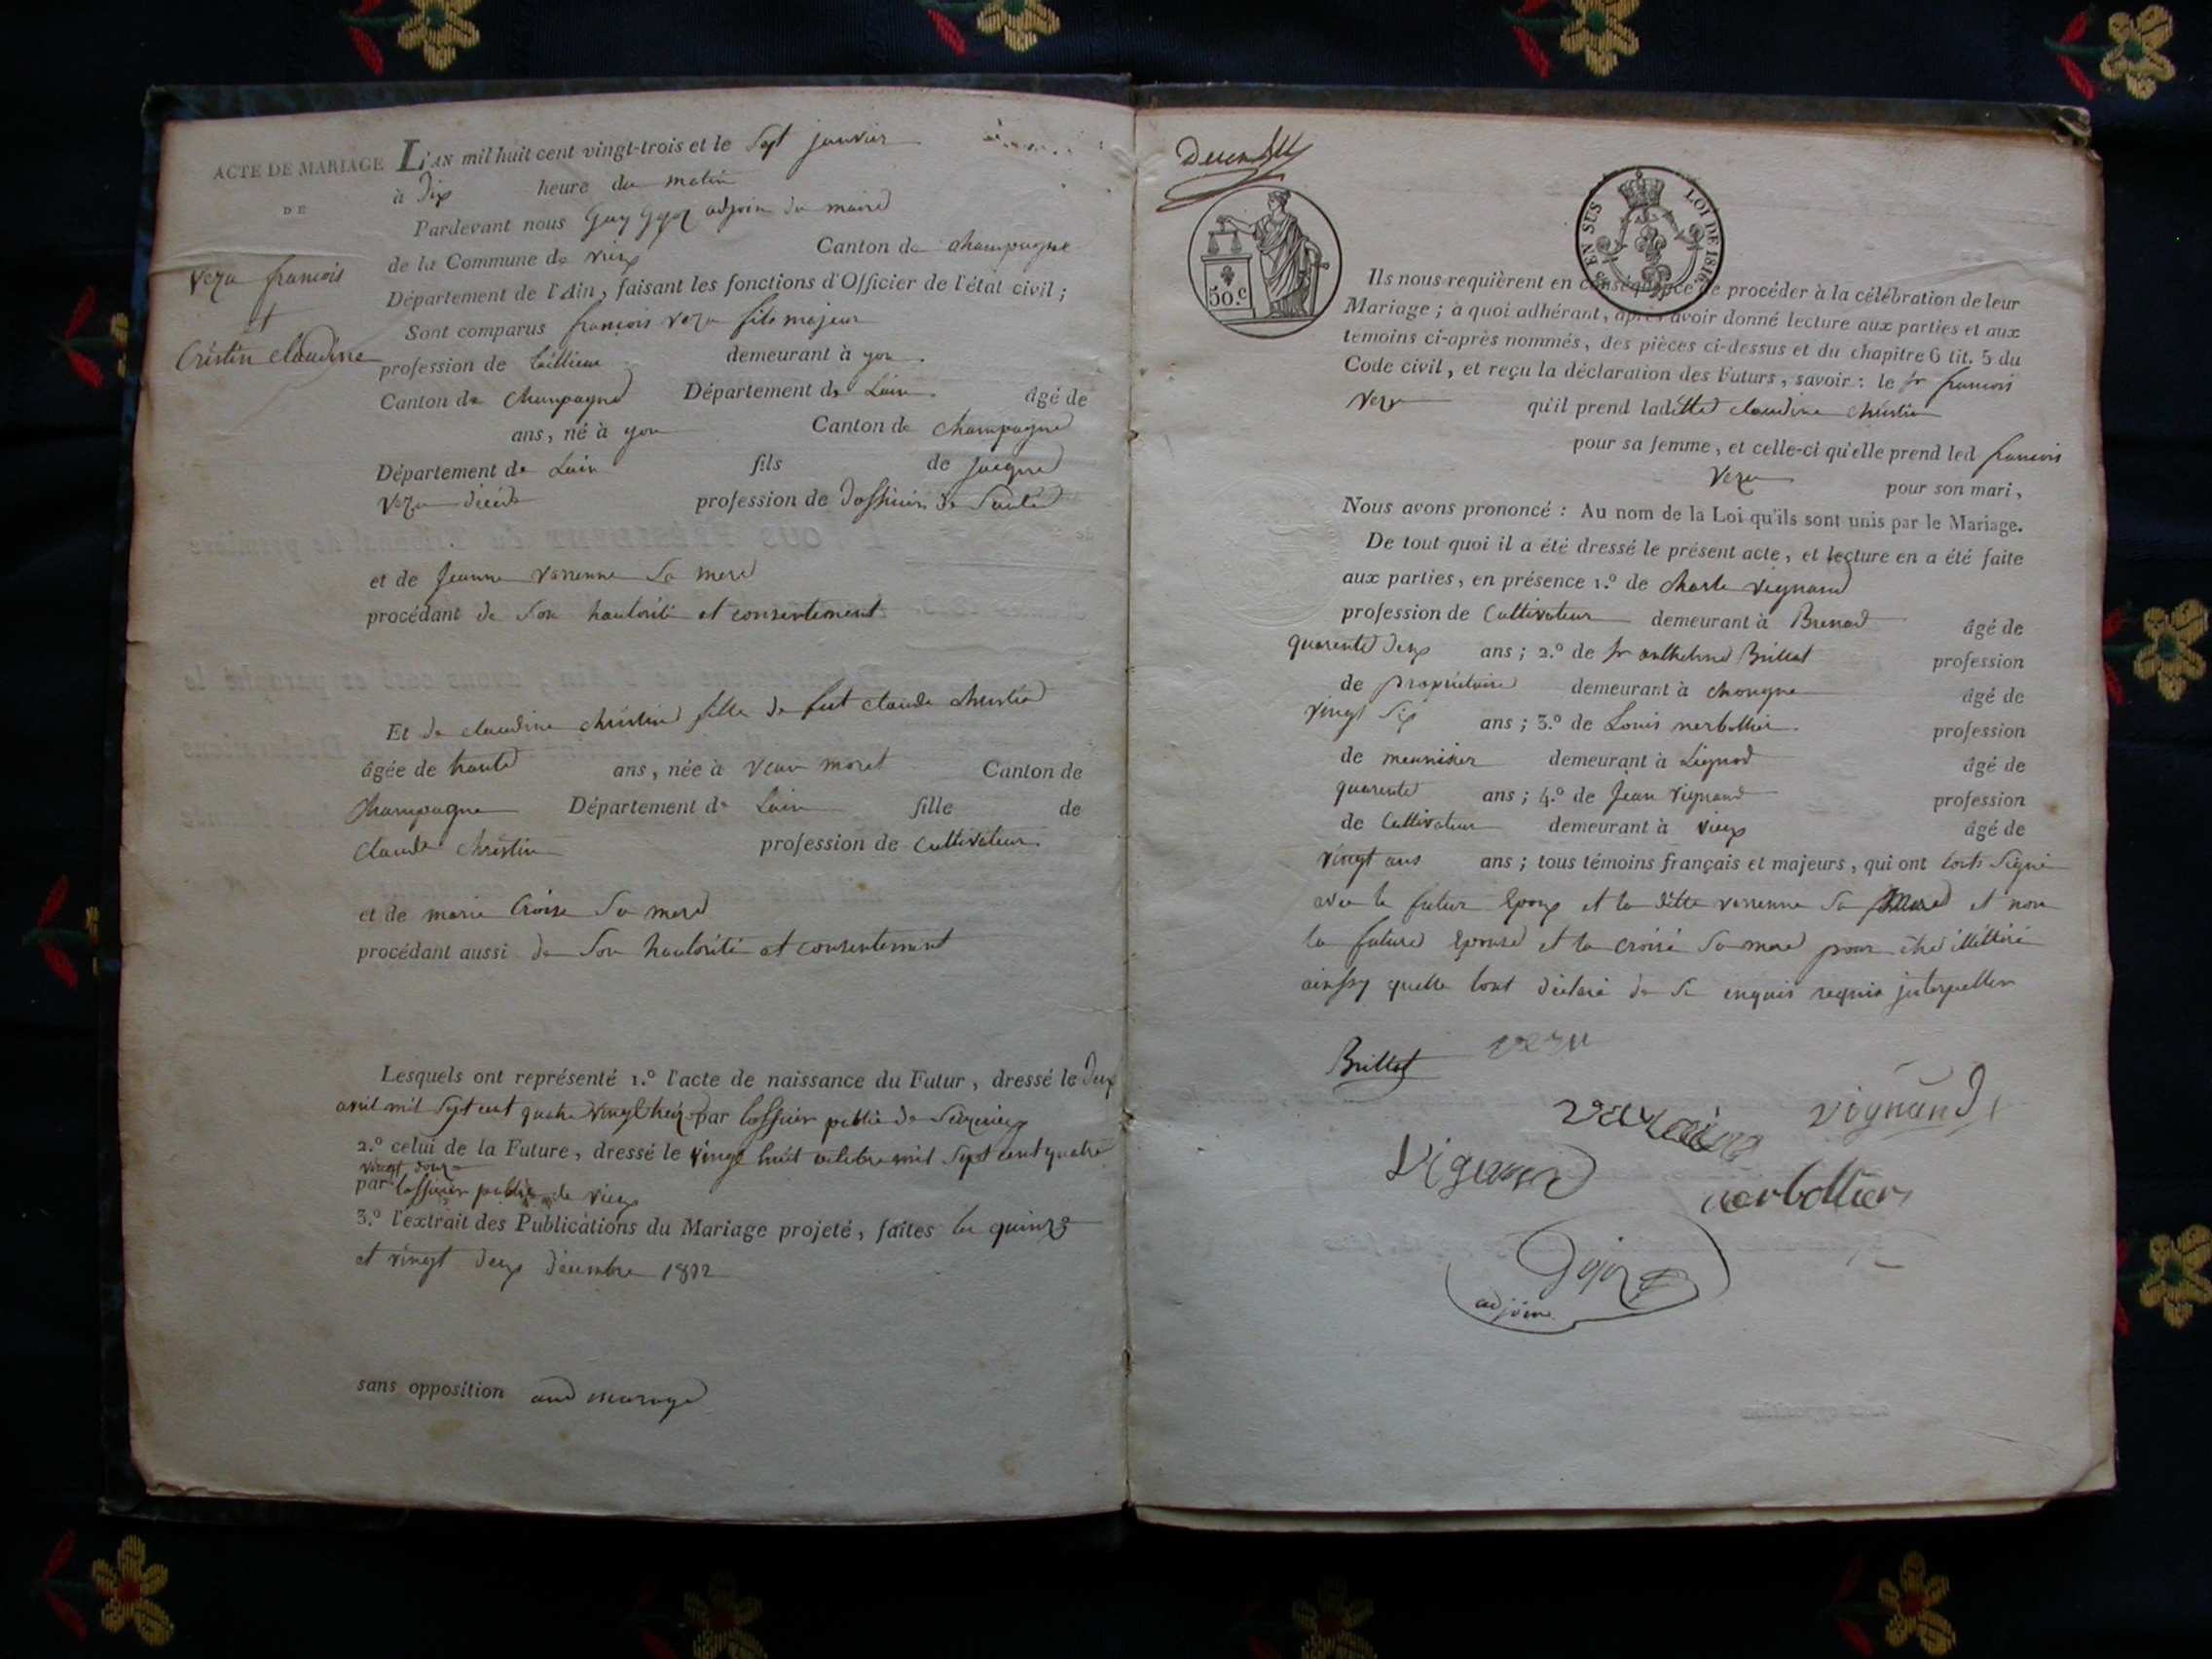 ACTE DE MARIAGE
DE
Vezu francois
et
Cristin claudine
L'AN mil huit cent vingt-trois et le Sept janvier
à Dix heure du matin
Pardevant nous Guy Gojoz adjoin du maire
de la Commune de vieux Canton de champagne
Département de l'Ain, faisant les fonctions d'Officier de l'état civil ;
Sont comparus françois vezu fils majeur
profession de tailleur demeurant à yon
Canton de Champagne Département de Lain âgé de
ans, né à yon Canton de champagne
Département de Lain fils de jacque
vezu décédé profession de dofficier de Santé
et de jeanne varenne Sa mere
procédant de Son hautorité et consentement
Et de claudine christin fille de feut claude christin
âgée de trante ans, née à moret Canton de
Champagne Département de Lain fille de
claude christin profession de cultivateur
et de marie Croise Sa mere
procédant aussi de Son hautorité et consentement
Lesquels ont représenté 1.º l'acte de naissance du Futur, dressé le deux
avril mil Sept cent quatre vingt par lofficier public de
2.º celui de la Future, dressé le vingt huit octobre mil Sept cent quatre
vingt douze
par lofficier public de vieux
3.º l'extrait des Publications du Mariage projeté, faites les quinze
et vingt deux décembre 1822
sans opposition aud mariage
50.c
EN SUS LOI DE 1816
Ils nous requièrent en conséquence de procéder à la célébration de leur
Mariage ; à quoi adhérant, après avoir donné lecture aux parties et aux
témoins ci-après nommés, des pièces ci-dessus et du chapitre 6 tit. 5 du
Code civil, et reçu la déclaration des Futurs, savoir : le sr francois
Vezu qu'il prend laditte claudine christin
pour sa femme, et celle-ci qu'elle prend led francois
Vezu pour son mari,
Nous avons prononcé : Au nom de la Loi qu'ils sont unis par le Mariage.
De tout quoi il a été dressé le présent acte, et lecture en a été faite
aux parties, en présence 1.º de charle vignand
profession de Cultivateur demeurant à Brenod âgé de
quarente deux ans ; 2.º de sr anthelme Brillat profession
de propriétaire demeurant à chongne âgé de
vingt Six ans ; 3.º de Louis nerbollier profession
de meunier demeurant à Lignod âgé de
quarente ans ; 4.º de jean vignand profession
de Cultivateur demeurant à vieux âgé de
vingt ans ; tous témoins français et majeurs, qui ont touts Signé
avec le futur Epoux et la ditte varenne Sa mere et non
la future Epouse et la croise Sa mere pour être illitéré
ainssy quelle lont déclaré de ce enquis requis interpeller
Brillat vezu
vignand
nerbollier
Gojoz
adjoin